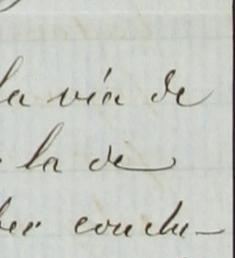 la via de
la de
ber conclu-